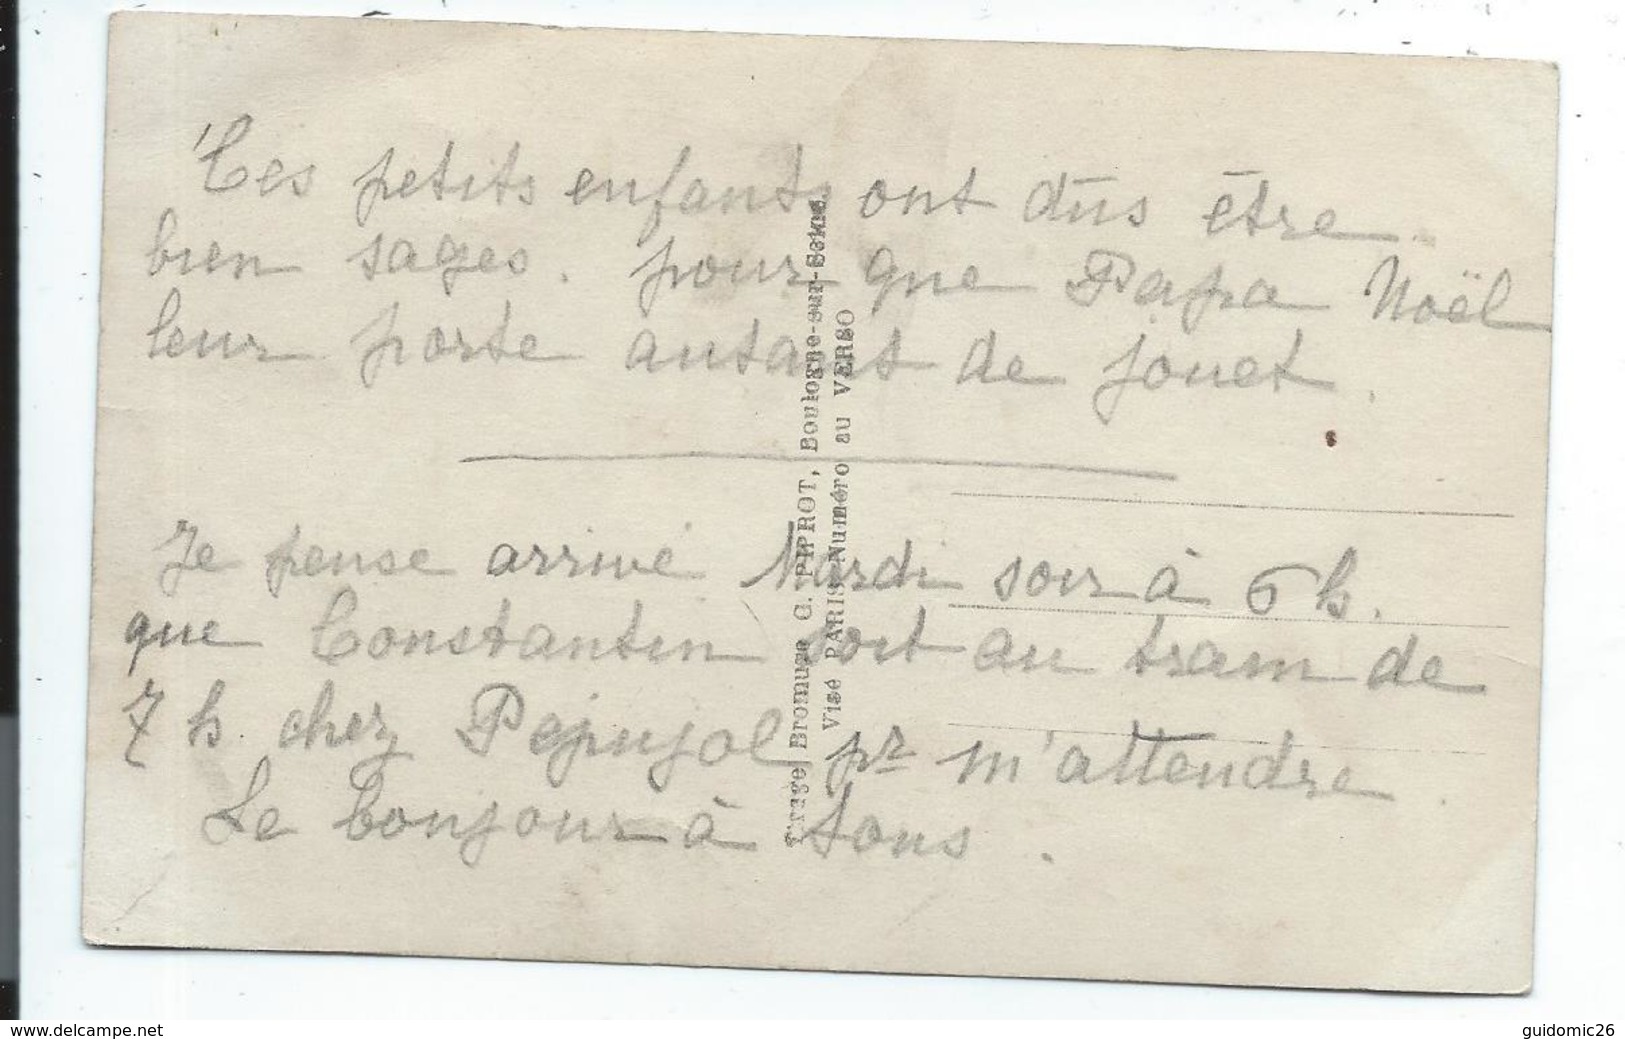 Ces petits enfants ont dûs être
bien sages. pour que Papa Noël
leur porte autant de jouet.
Je pense arrivé Mardi soir à 6 h.
que Constantin soit au tram de
7 h chez Pepujol pr m'attendre.
Le bonjour à tous.
Tirage Bromure C. PIPROT, Boulogne-sur-Seine.
Visé PARIS Numéro au VERSO
www.delcampe.net
guidomic26